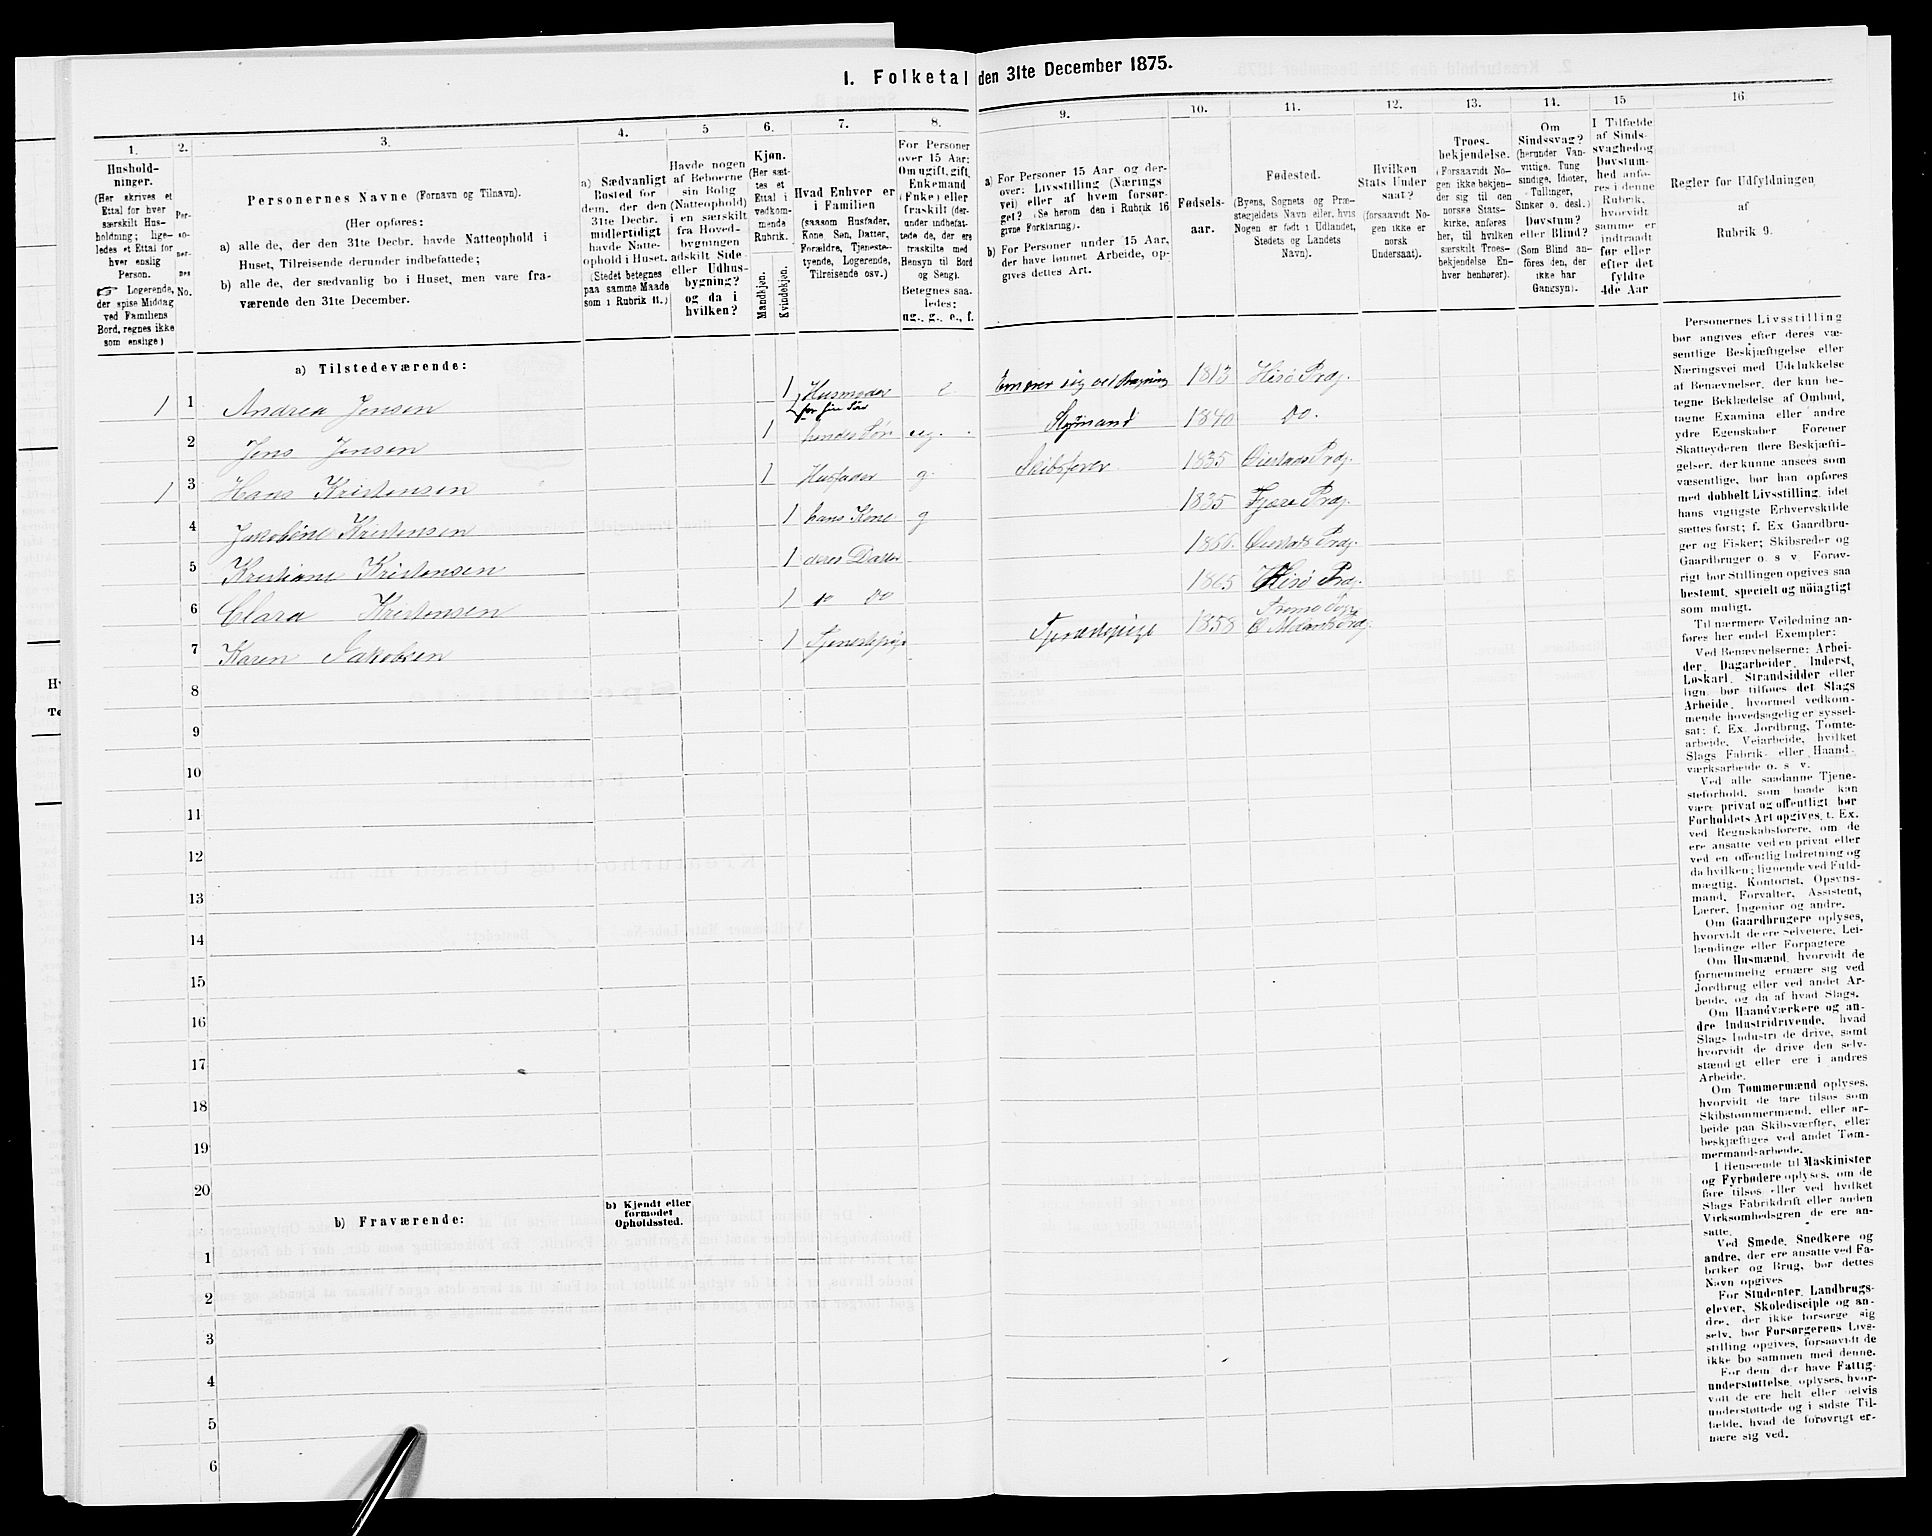 1. Folketal den 31te December 1875.
1.
Hushold-
ninger.
(Her skrives et
Ettal for hver
særskilt Hus-
holdning; lige-
ledes et Ettal for
hver enslig
Person.
☞ Logerende,
der spise Middag
ved Familiens
Bord, regnes ikke
som enslige)
2.
Per-
so-
ner-
nes
No.
3.
Personernes Navne (Fornavn og Tilnavn).
(Her opføres:
a) alle de, der den 31te Decbr. havde Natteophold i
Huset, Tilreisende derunder indbefattede;
b) alle de, der sædvanlig bo i Huset, men vare fra-
værende den 31te December.
4.
a) Sædvanligt
Bosted for
dem, der den
31te Decbr.
midlertidigt
havde Natte-
ophold i Huset.
(Stedet betegnes
paa samme Maade
som i Rubrik 11.)
5
Havde nogen
af Beboerne
sin Bolig
(Natteophold)
i en særskilt
fra Hoved-
bygningen
adskilt Side-
eller Udhus-
bygning?
og da i
hvilken?
6.
Kjøn.
(Her sæt-
tes et
Ettal i
vedkom-
mende
Rubrik.
Mandkjøn.
Kvindekjøn.
7.
Hvad Enhver er
i Familien
(saasom Husfader,
Kone Søn, Datter,
Forældre, Tjeneste-
tyende, Logerende,
Tilreisende osv.)
8.
For Personer
over 15 Aar:
Om ugift, gift,
Enkemand
(Enke) eller
fraskilt (der-
under indbefat-
tede de, der ere
fraskilte med
Hensyn til Bord
og Seng).
Betegnes saa-
ledes:
ug., g., e., f.
9.
a) For Personer 15 Aar og der-
over: Livsstilling (Nærings
vei) eller af hvem forsør-
get? (Se herom den i Rubrik 16
givne Forklaring).
b) For Personer under 15 Aar,
der have lønnet Arbeide, op-
gives dettes Art.
10.
Fødsels-
aar.
11.
Fødested.
(Byens, Sognets og Præ-
stegjeldets Navn eller, hvis
Nogen er født i Udlandet,
Stedets og Landets
Navn).
12.
Hvilken
Stats Under
saat?
(forsaavidt No-
gen ikke er
norsk
Undersaat).
13.
Troes-
bekjendelse.
(Forsaavidt No
gen ikke bekjen-
der sig til den
norske Stats-
kirke, anføres
her, til hvilken
særskilt Troes-
bekjendelse En-
hver henhører).
14.
Om
Sindssvag?
(herunder Van-
vittige. Tung
sindige, Idioter,
Tullinger,
Sinker o. desl.)
Døvstum?
eller Blind?
(Som Blind an-
føres den, der
ikke har
Gangsyn).
15
I Tilfælde
af Sinds-
svaghed og
Døvstum-
hed anfø-
res i denne
Rubrik,
hvorvidt
samme er
indtraadt
før eller
efter det
fyldte
4de Aar
16.
Regler for Udfyldningen
af
Rubrik 9.
a) Tilstedeværende:
1 1 Andrea Jensen 1 Husmoder for sin Sön e Ernærer sig ved 1813 Hisö Prdg.
2 Jens Jensen 1 hendes Sön ug. Sömand 1840 do.
1 3 Hans Kristensen 1 Husfader g. Skibsförer 1835 Öiestads Prdg.
4 Jakobine Kristensen 1 hans Kone g 1835 Fjære Prdg.
5 Kristiane Kristensen 1 deres Datter Öiestads Prdg.
6 Clara Kristensen 1 do do 1865 Hisö Prdg.
7 Karen Jakobsen 1 Tjenestepige Tjenestepige 1858 Tromö Sogn Ö. Molands Prdg.
8
9
10
11
12
13
14
15
16
17
18
19
20
b) Fraværende:
b) Kjendt eller
formodet
Opholdssted.
1
2
3
4
5
6
Personernes Livsstilling
bør angives efter deres væ-
sentlige Beskjæftigelse eller
Næringsvei med Udelukkelse
af Benævnelser, der kun be-
tegne Beklædelse af Ombud,
tagne Examina eller andre
ydre Egenskaber Forener
Skatteyderen flere Beskjæfti-
gelser, der kunne ansees som
væsentlige, bør han opføres
med dobbelt Livsstilling, idet
hans vigtigste Erhvervskilde
sættes først; f. Ex Gaardbru-
ger og Fisker; Skibsreder og
Gaardbruger o. s v. Forøv-
rigt bør Stillingen opgives saa
bestemt, specielt og nöiagtigt
som muligt.
Til nærmere Veiledning an-
føres her endel Exempler:
Ved Benævnelserne: Arbei-
der, Dagarbeider, Inderst,
Løskarl, Strandsidder eller
lign. bør tilføies det Slags
Arbeide, hvormed vedkom-
mende hovedsagelig er syssel-
sat; f. Ex. Jordbrug, Tomte-
arbeide, Veiarbeide, hvilket
Slags Fabrik- eller Haand-
værksarbeide o. s. v.
Ved alle saadanne Tjene-
steforhold, som baade kan
være privat og offentligt bør
Forholdets Art opgives, t. Ex.
ved Regnskabsførere, om de
ere ansatte ved en privat eller
ved en offentlig Indretning og
da hvilken; lignende ved Fuld-
mægtig, Kontorist, Opsyns-
mand, Forvalter, Assistent,
Lærer, Ingeniør og andre.
Om Gaardbrugere oplyses,
hvorvidt de ere Selveiere, Lei-
lændinge eller Forpagtere
Om Husmænd, hvorvidt de
fornemmelig ernære sig ved
Jordbrug eller ved andet Ar-
beide, og da af hvad Slags.
Om Haandværkere og an-
dre Industridrivende, hvad
Slags Industri de drive, samt
hvorvidt de drive den selv-
stændigt eller ere i andres
Arbeide.
Om Tømmermænd oplyses,
hvorvidt de fare tilsøs som
Skibstømmermænd, eller ar-
beide paa Skibsværfter, eller
beskjæftiges ved andet Tøm-
mermand-arbeide.
I Henseende til Maskinister
og Fyrbødere oplyses, om de
fare tilsøs eller ved hvilket
Slags Fabrikdrift eller anden
Virksomhedsgren de ere an-
satte.
Ved Smede, Snedkere og
andre, der ere ansatte ved Fa-
briker og Brug, bør dettes
Navn opgives
For Studenter, Landbrugs-
elever, Skoledisciple og an-
dre, der ikke forsørge sig
selv, bør Forsørgerens Livs-
stilling opgives, forsaavidt de
ikke bo sammen med denne.
For dem, der have Fattig-
understøttelse, oplyses, hvor-
vidt de ere helt eller delvis
understøttede og i sidste Til-
fælde, hvad de forøvrigt er-
nære sig ved.